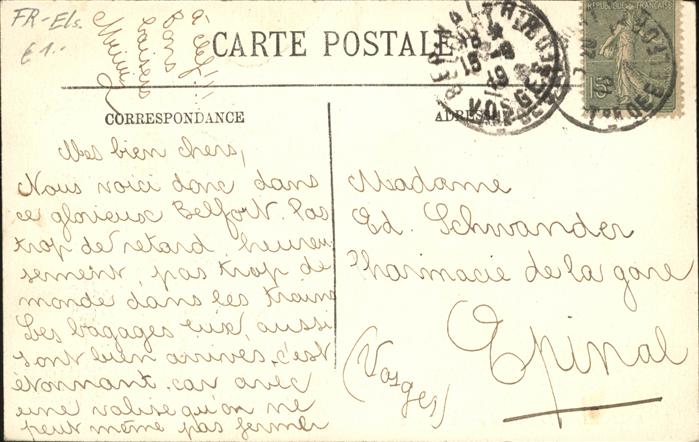 FR-Els.
€ 1.-
à clef!!
Bons
baisers
CARTE POSTALE
RÉPUBLIQUE FRANÇAISE
15c
VOSGES
CORRESPONDANCE
ADRESSE
Mes bien chers,
Nous voici donc dans
ce glorieux Belfort. Pas
trop de retard heureu
sement, pas trop de
monde dans les trains
Les bagages eux, aussi
sont bien arrivés, c'est
étonnant car avec
une valise qu'on ne
peut même pas fermer
Madame
Ed. Schwander
Pharmacie de la gare
Epinal
(Vosges)